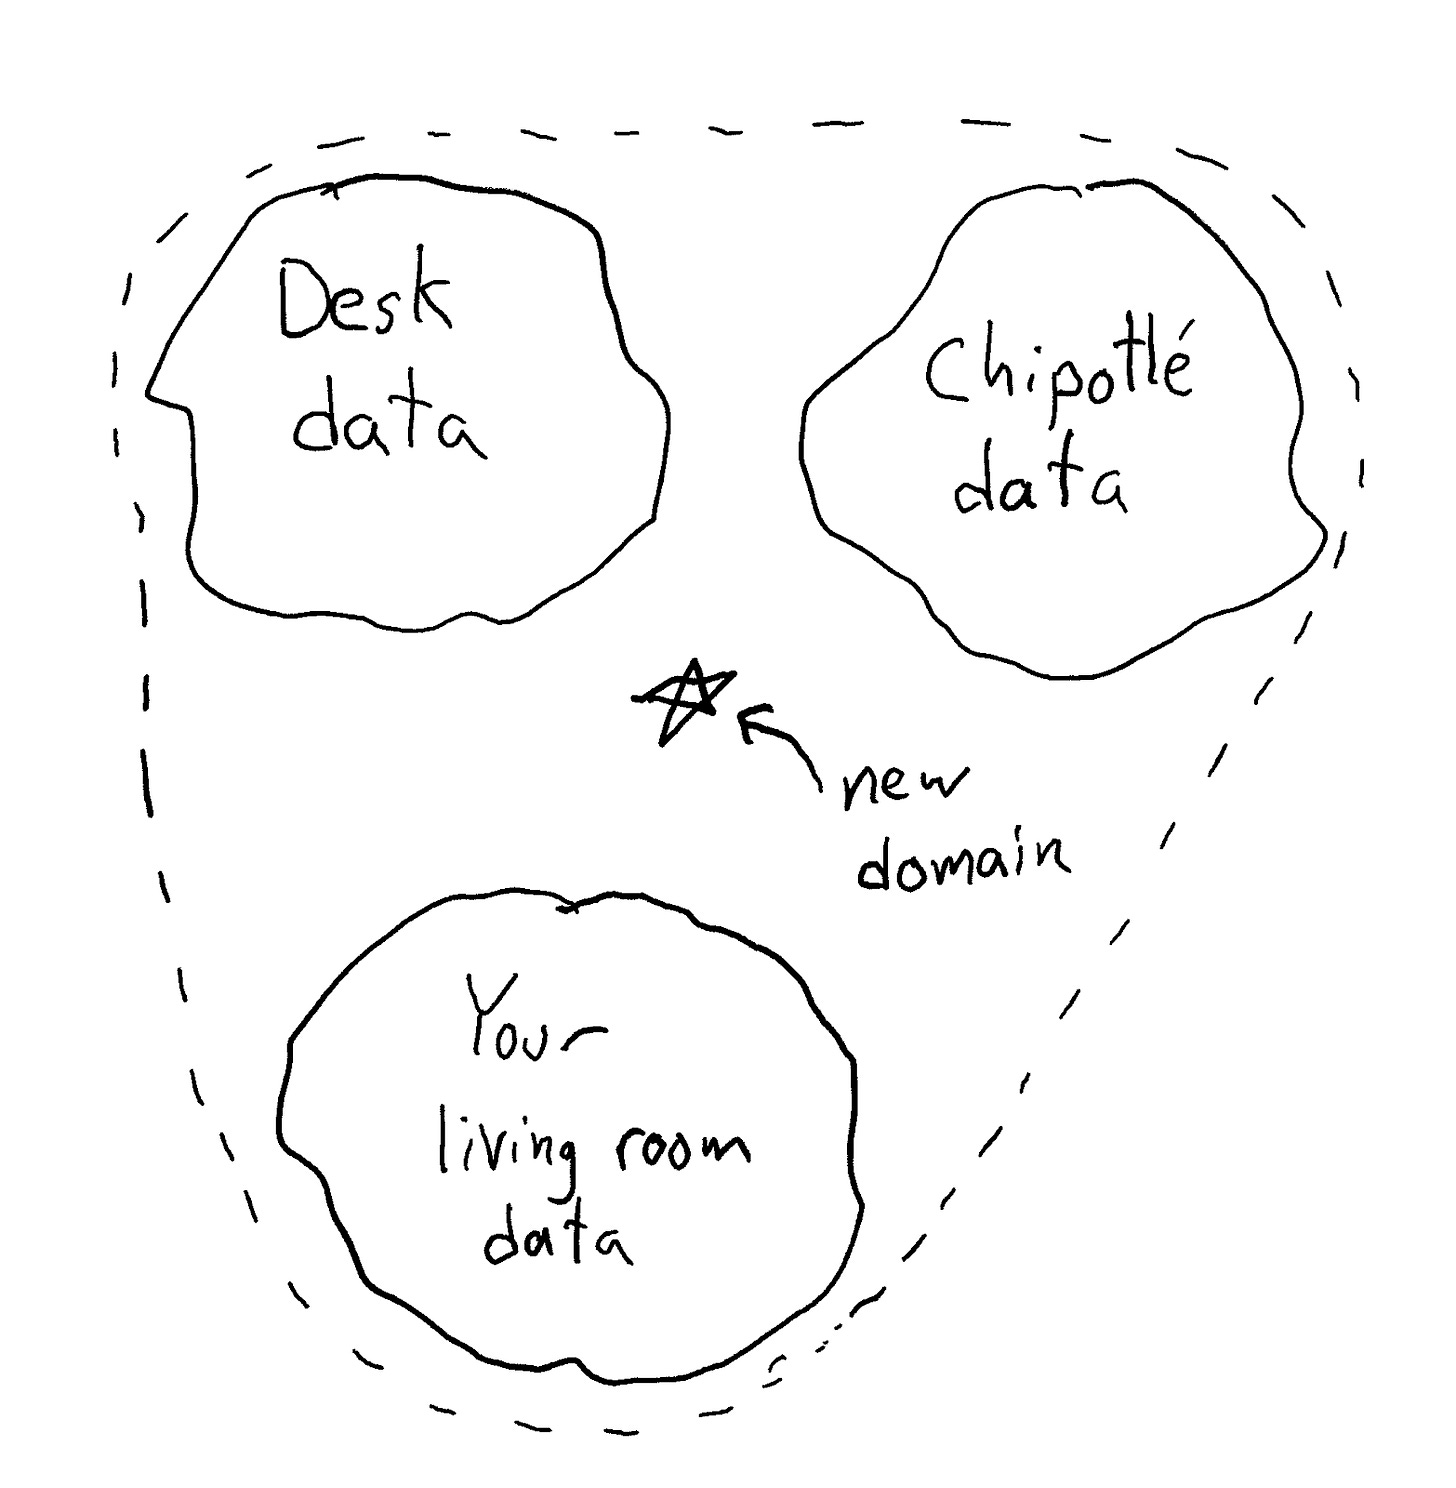 Desk
data
Chipotlé
data
new
domain
Your
living room
data